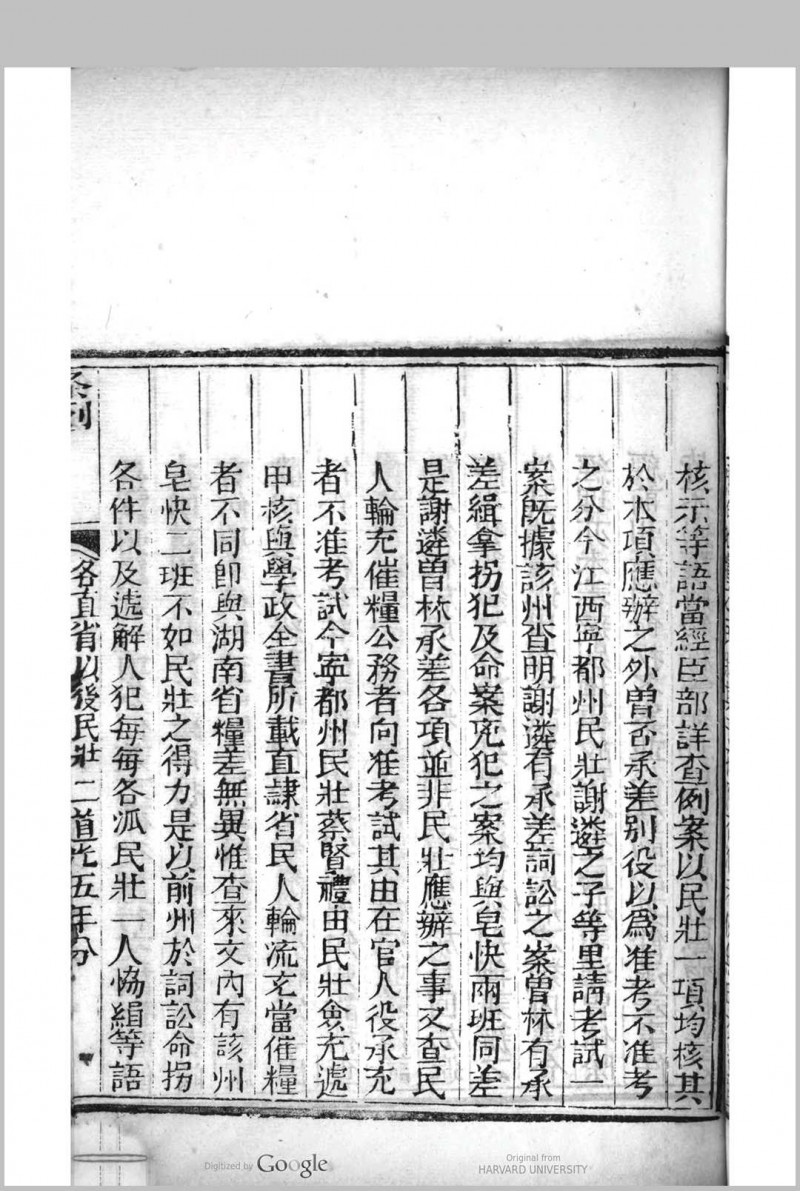 核示等語當經臣部詳查例案以民壯一項均核其
於本項應辦之外曾否承差別役以爲准考不准考
之分今江西寧都州民壯謝遴之子等呈請考試一
案既據該州查明謝遴有承差詞訟之案曾林有承
差緝拿拐犯及命案兇犯之案均與皂快兩班同差
是謝遴曾林承差各項並非民壯應辦之事又查民
人輪充催糧公務者向准考試其由在官人役承充
者不准考試今寧都州民壯蔡賢禮由民壯僉充遞
甲核與學政全書所載直隸省民人輪流充當催糧
者不同卽與湖南省糧差無異惟查來文內有該州
皂快二班不如民壯之得力是以前州於詞訟命拐
各件以及遞解人犯每每各派民壯一人協緝等語
条列
各直省以後民壯 二道光五年分
Digitized by Google
Original from
HARVARD UNIVERSITY